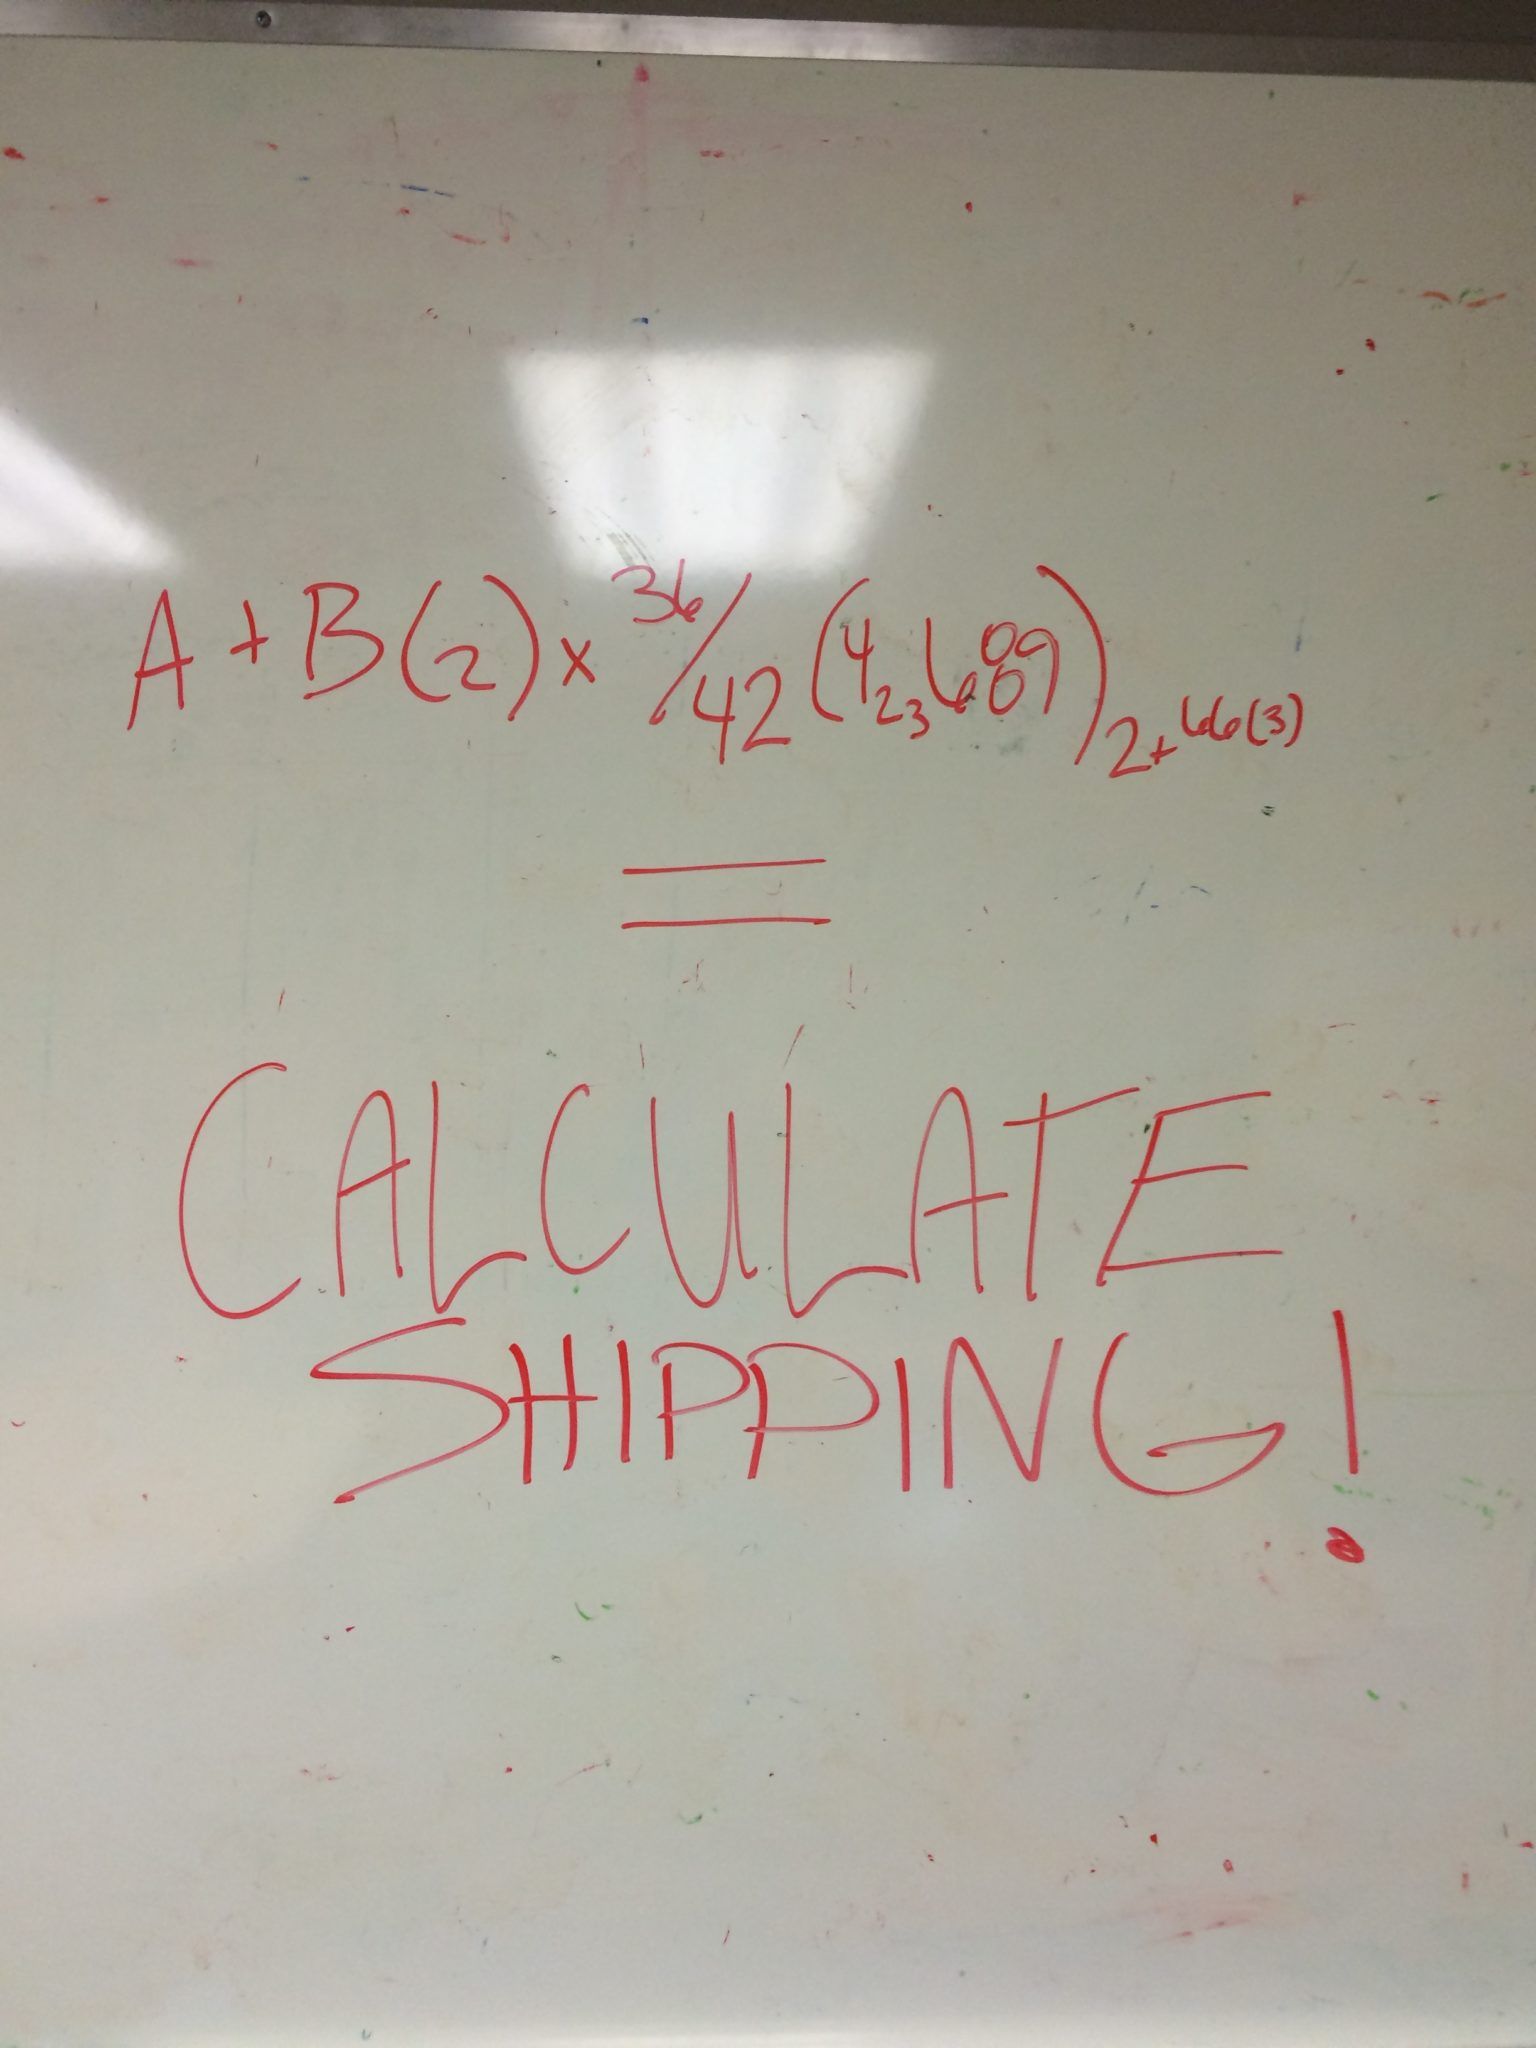 A + B(2) x 36/42 (4 23 6 89) 2 + 66(3)
=
CALCULATE
SHIPPING!